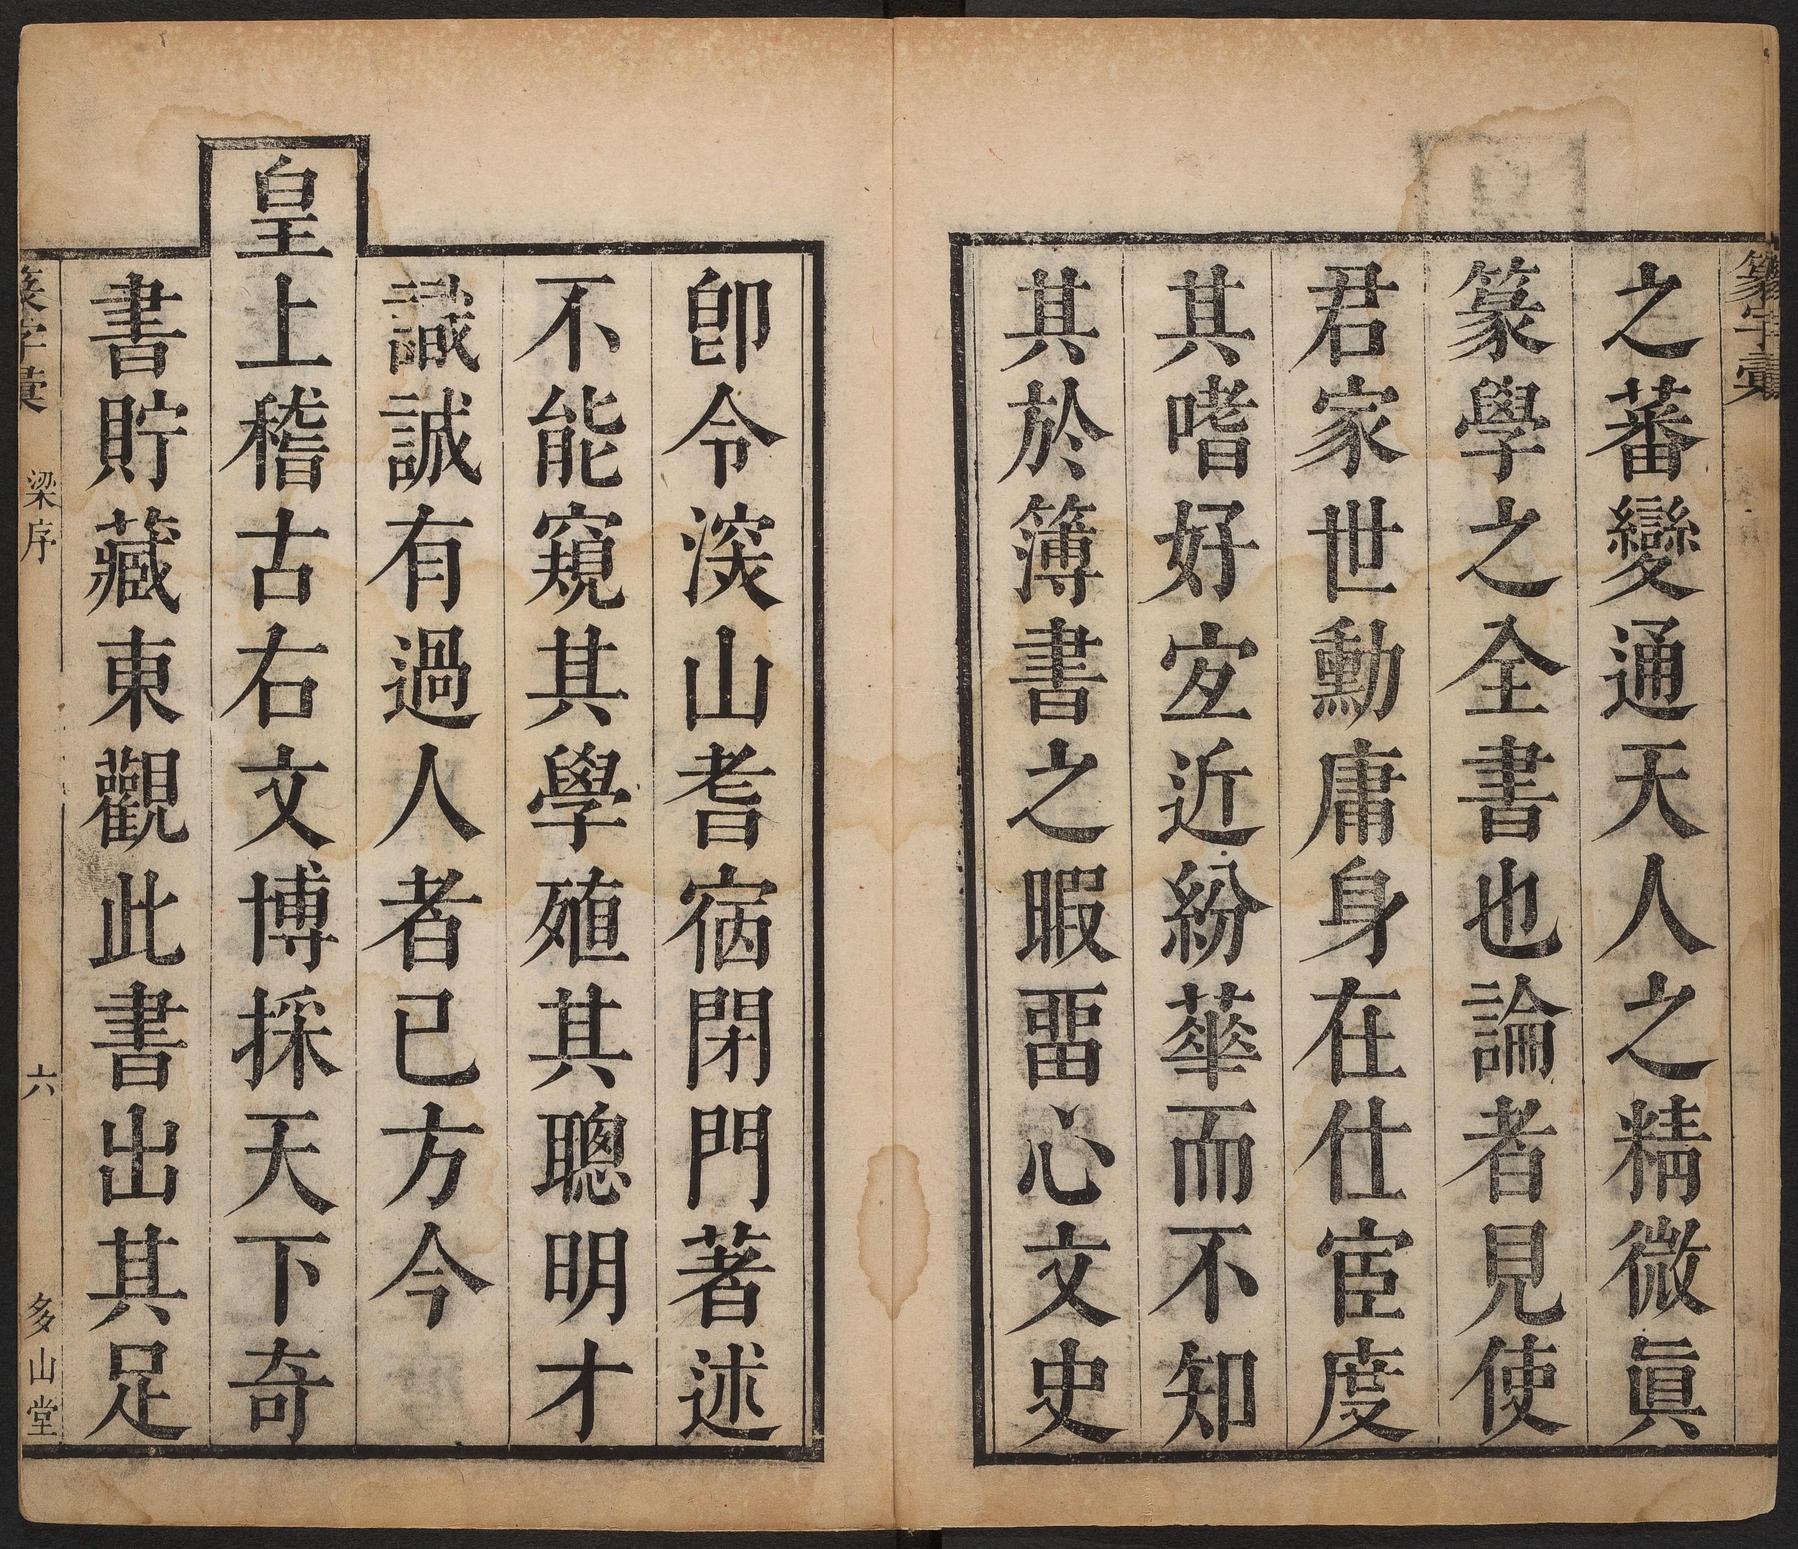 篆字彙
之蕃變通天人之精微眞
篆學之全書也論者見使
君家世勳庸身在仕宦度
其嗜好宐近紛華而不知
其於簿書之暇畱心文史
卽令深山耆宿閉門著述
不能窺其學殖其聰明才
識誠有過人者已方今
皇上稽古右文博採天下奇
書貯藏東觀此書出其足
篆字彙 梁序 六 多山堂